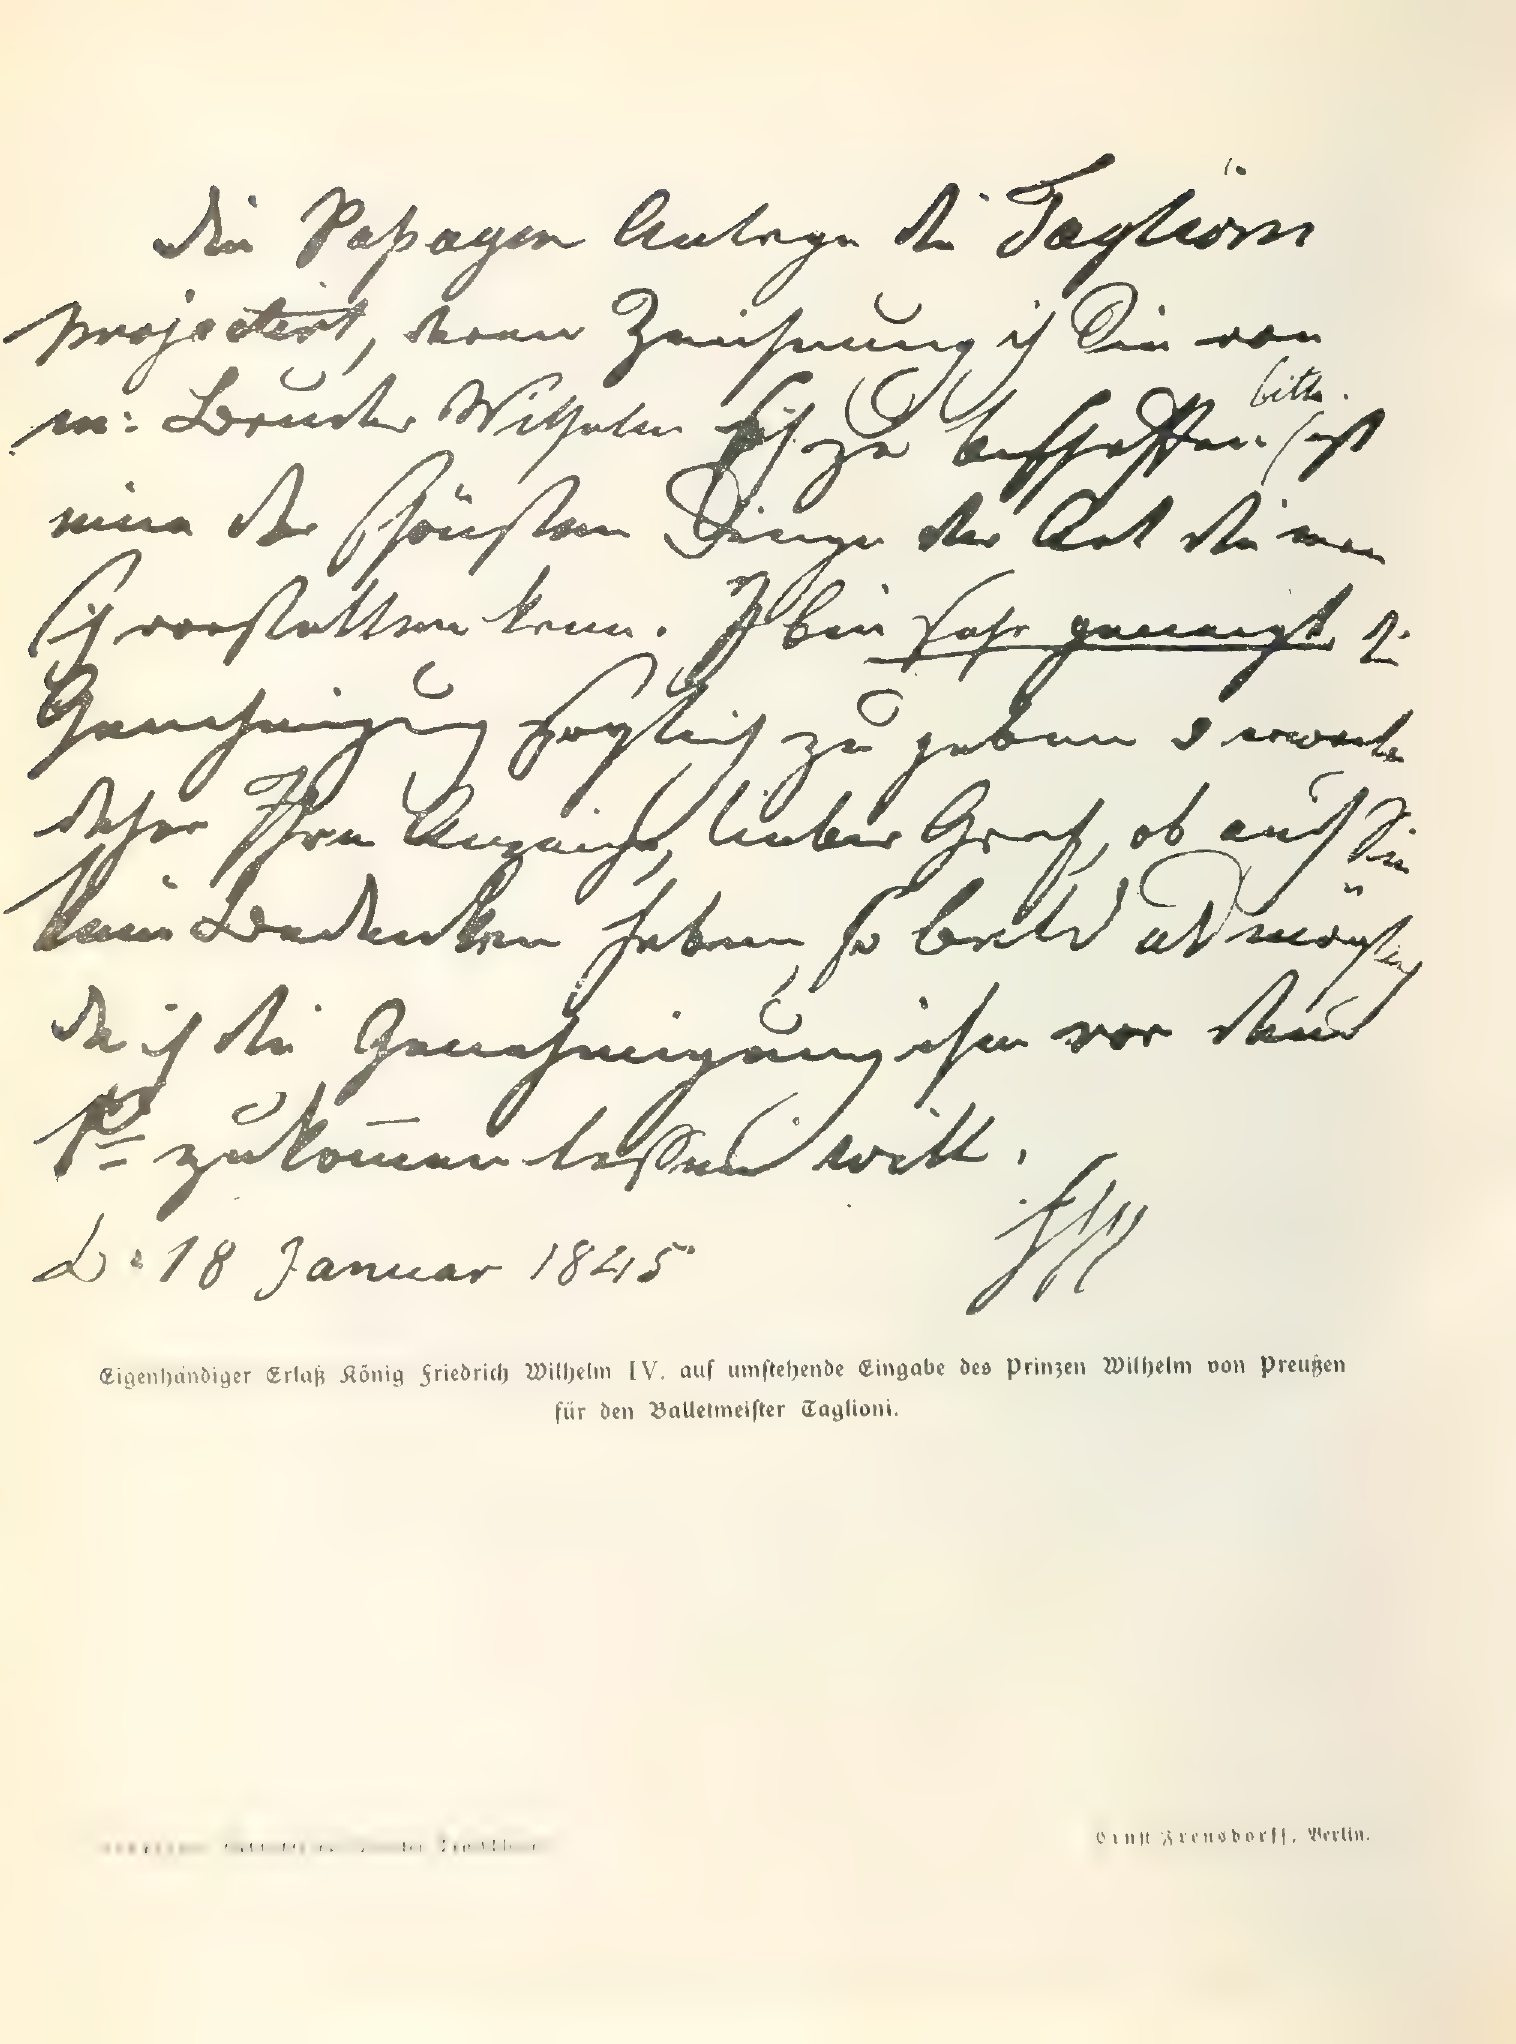 Die Papageien Anlage die Taglioni
projectirt, deren Zeichnung ich Sie von
m: Bruder Wilhelm sich zu beschaffen bitte. ist
eine der schönsten Dinge der Art die man
sich vorstellen kann. Ich bin sehr geneigt die
Genehmigung sogleich zu geben & erwarte
daher Ihre Anzeige, lieber Graf, ob auch Sie
kein Bedenken haben, so bald als möglich
da ich die Genehmigung ihm vor dem
zukommen lassen will.
d: 18 Januar 1845
FW
Eigenhändiger Erlaß König Friedrich Wilhelm IV. auf umstehende Eingabe des Prinzen Wilhelm von Preußen
für den Balletmeister Taglioni.
Ernst Frensdorff, Berlin.